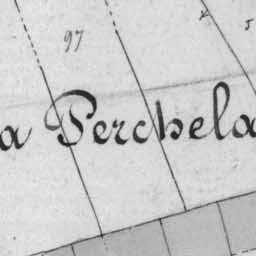 97
5
a Perchela